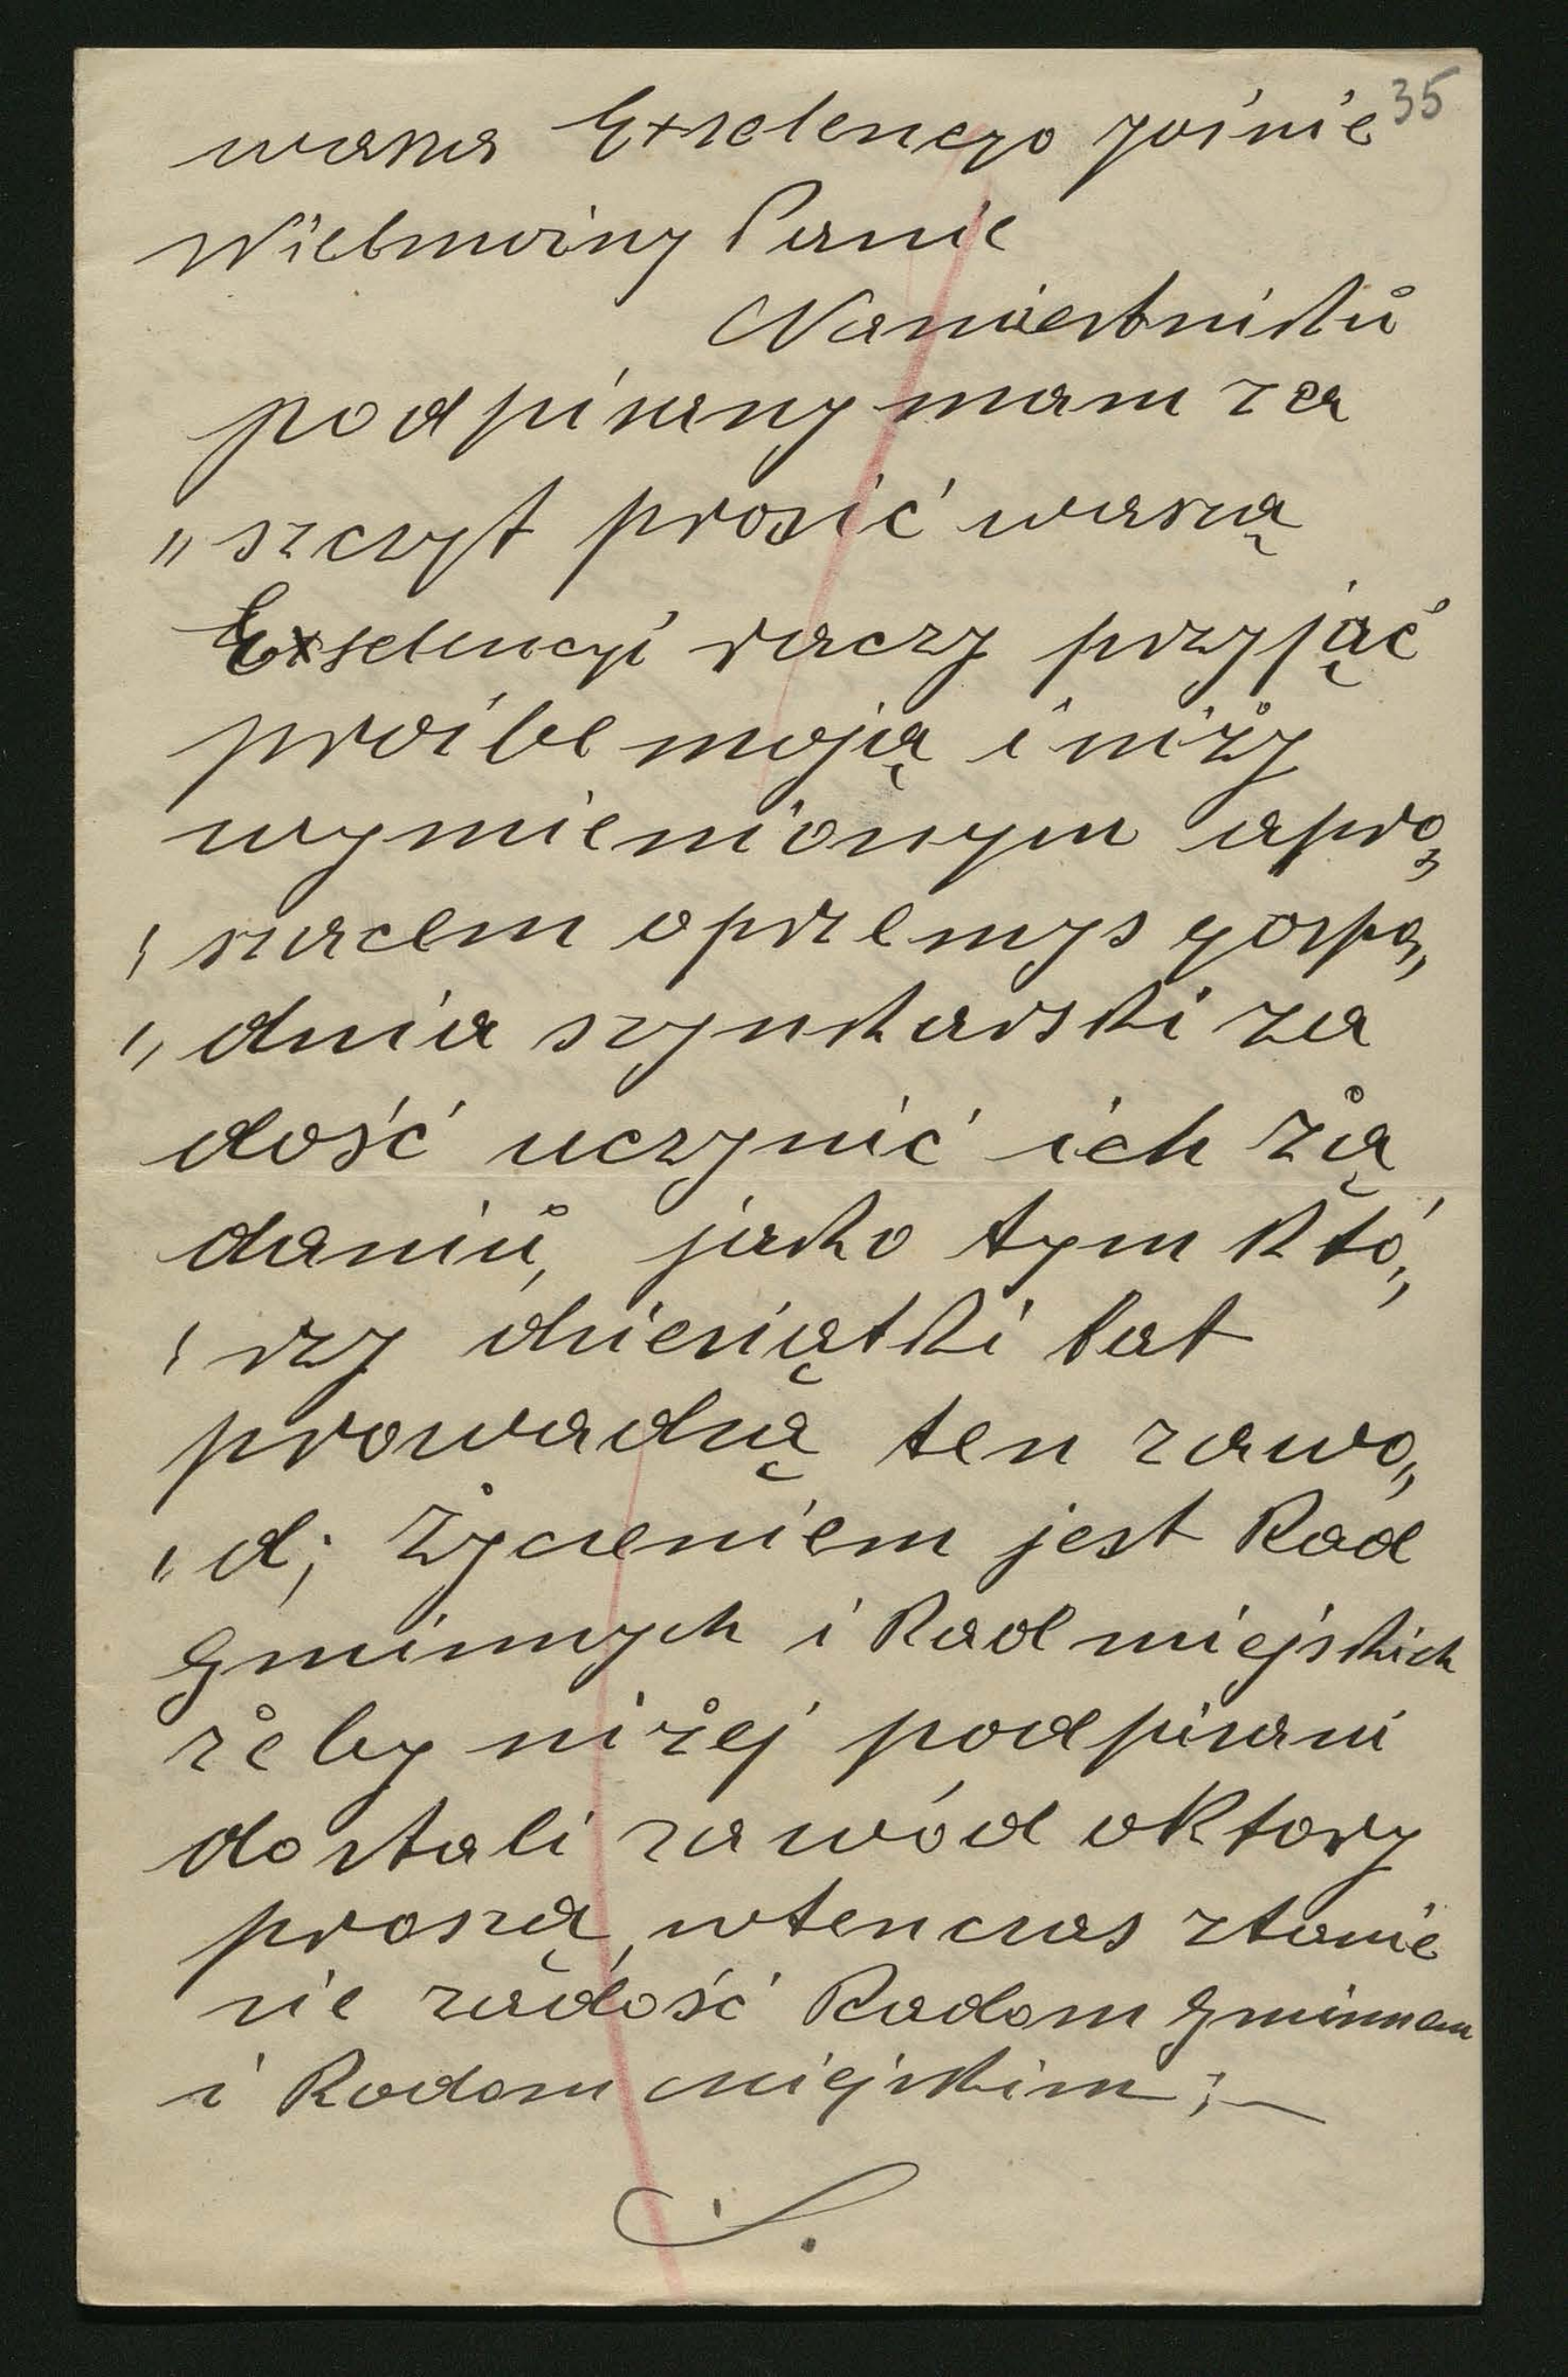 35
wasza Exselencyo jaśnie
Wielmożny Panie
Namiestniků
podpisany mam za
„ szczyt prosić waszą
Exselencyi raczy przyjąć
prośbe moją i niży
wymienionym upro„
„ szacem oprzemys gospo„
„ dnia szynkarski za
dość uczynić ich żą
daniů, jako tym Któ„
„ rzy dziesiątki lat
prowadzą ten zawo„
„ d; Życzeniem jest Rad
gminnych i Rad miejskich
żeby niżej podpisani
dostali zawód oKtory
proszą, wtenczas ztanie
sie zadość Radom gminnem
i Radom miejskim ; —